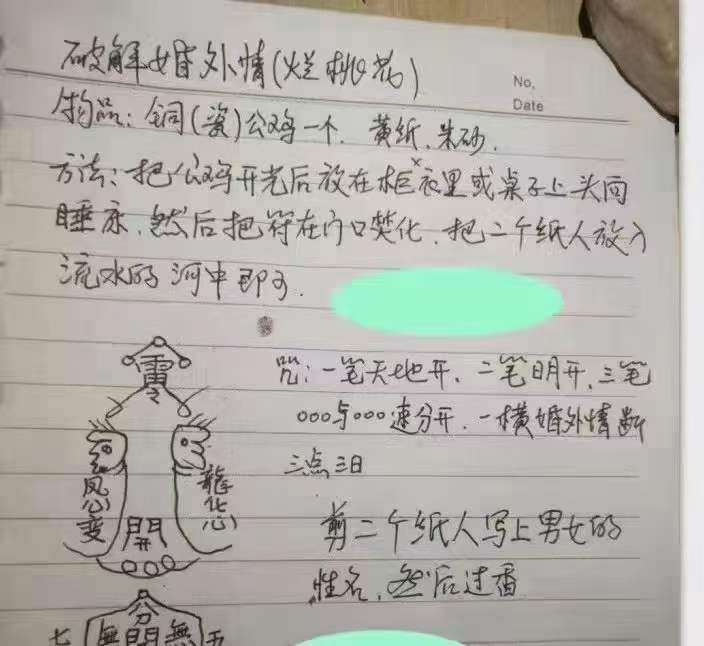 破解婚外情(烂桃花)
No.
Date
物品:铜(瓷)公鸡一个、黄纸、朱砂.
方法:把公鸡开光后放在柜衣里或桌子上头向
睡床,然后把符在门口焚化,把二个纸人放入
流水的河中即可.
咒:一笔天地开、二笔明开、三笔
ooo与ooo速分开、一横婚外情断
三点三日
剪二个纸人写上男女的
性名、然后过香
雷
令
凤心变
龍化心
開
分
七 無開無 五